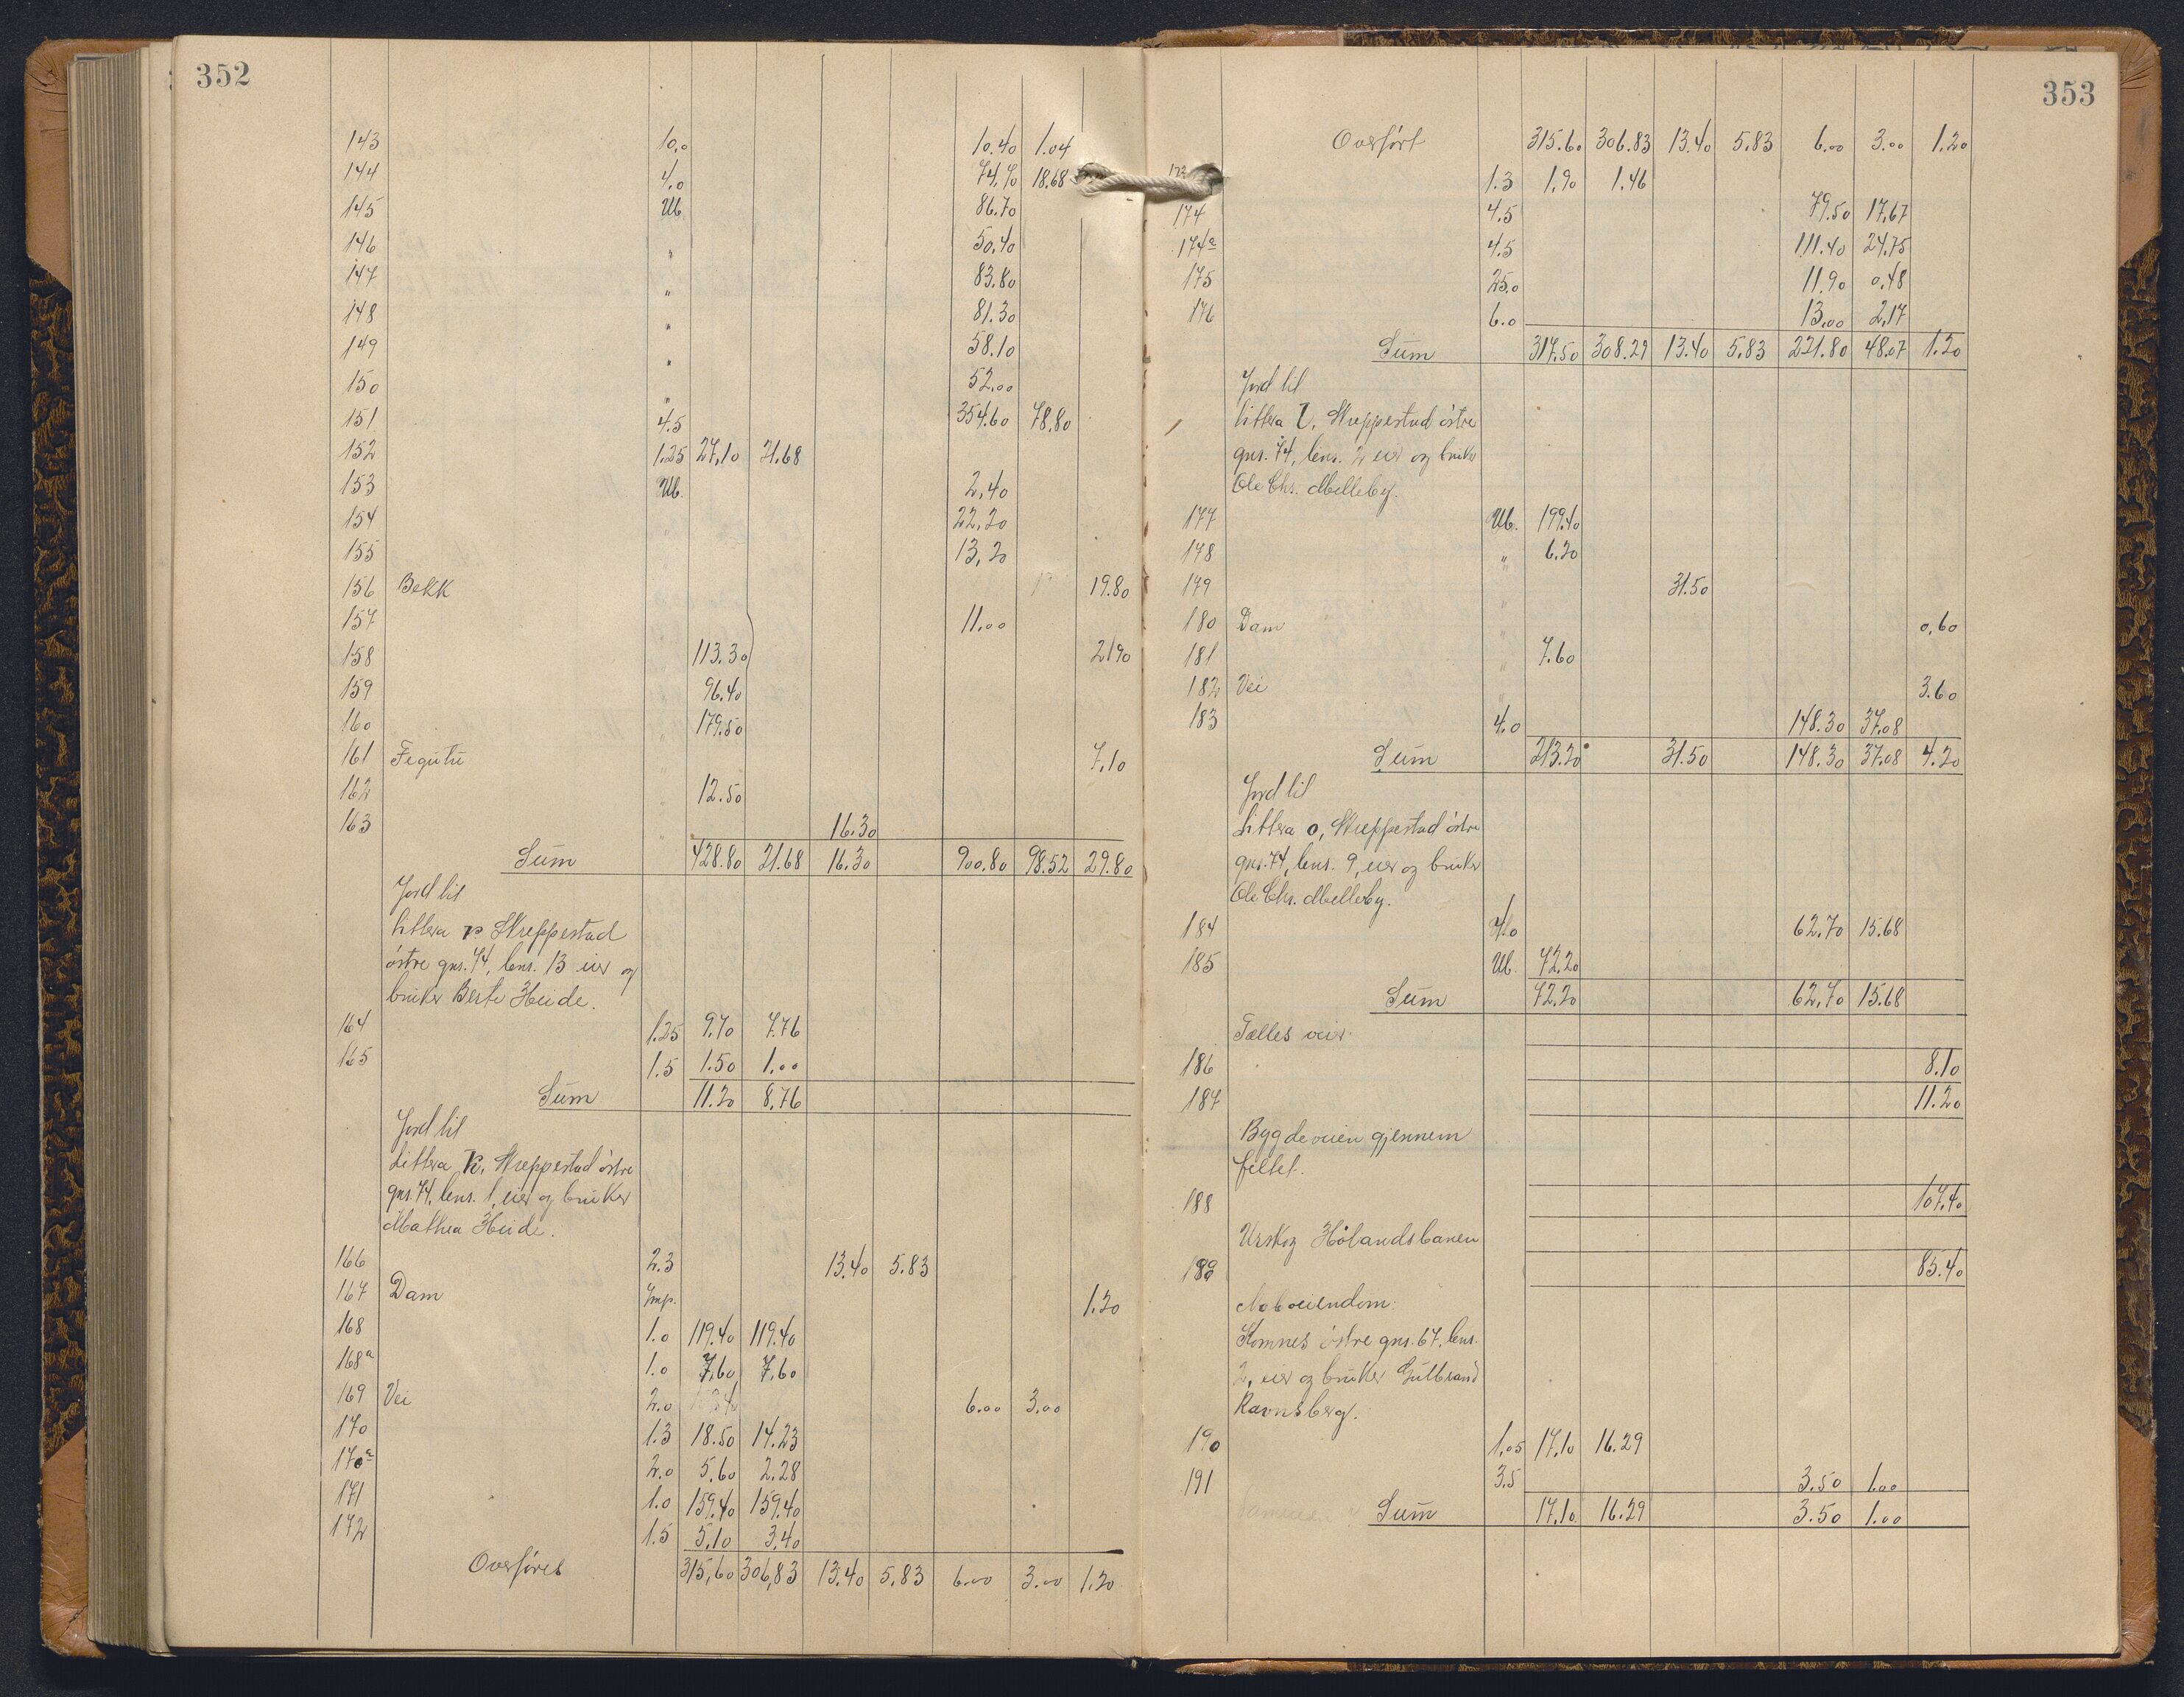 352
143 10,0 10.40 1.04
144 4,0 74,70 18.68
145 Ub 86.70
146 " 50,40
147 " 83.80
148 " 81.30
149 " 58.10
150 " 52,00
151 4.5 354.60 78.80
152 1.25 27,10 21.68
153 Ub. 2,40
154 " 22,20
155 " 13,20
156 Bekk 19.80
157 11.00
158 " 113.30 2.90
159 " 96.40
160 " 179.50
161 Fegutu " 7,10
162 " 12.50
163 " 16.30
Sum 428.80 21.68 16.30 900.80 98.52 29.80
Jord til
Littera p Skreppestad
östre gnr. 74, brnr. 13 eier og
bruker Berte Heide.
164 1.25 9,70 7.76
165 1.5 1.50 1.00
Sum 11.20 8,76
Jord til
Littera K, Skreppestad östre
gnr. 74, brnr. 1, eier og bruker
Mathea Heide.
166 2.3 13.40 5.83
167 Dam Imp. 1.20
168 1.0 119.40 119.40
168a 1.0 7,60 7,60
169 Vei 2.0 6.00 3.00
170 1.3 18.50 14.23
170a 2.0 5,60 2.28
171 1.0 159.40 159.40
172 1.5 5,10 3,40
Overføres 315,60 306,83 13.40 5,83 6.00 3.00 1.20
353
Overført 315.60 306.83 13.40 5.83 6.00 3.00 1.20
173 1.3 1,90 1.46
174 4.5 79.50 17,67
174a 4.5 111.40 24,75
175 25.0 11.90 0,48
176 6.0 13,00 2,17
Sum 317.50 308.29 13.40 5.83 221.80 48.07 1.20
Jord til
Littera l, Skreppestad östre
gnr. 74, brnr. 2 eier og bruker
Ole Chr. Melleby.
177 Ub. 199.40
178 " 6.20
179 " 31.50
180 Dam " 0,60
181 " 7.60
182 Vei " 3.60
183 4.0 148.30 37,08
Sum 213.20 31.50 148.30 37.08 4.20
Jord til
Littera o, Skreppestad östre
gnr. 74, brnr. 9, eier og bruker
Ole Chr. Melleby.
184 4.0 62.70 15.68
185 Ub. 72.20
Sum 72.20 62,70 15.68
Fælles veier.
186 8.10
187 11.20
Bygdeveien gjennem
feltet.
188 107.40
Urskog Hølandsbanen
189 85.40
Naboeiendom:
Komnes östre gnr. 67, brnr.
2, eier og bruker Gulbrand
Ravnsberg.
190 1,05 17,10 16.29
191 3.5 3.50 1.00
Sum 17,10 16.29 3.50 1.00